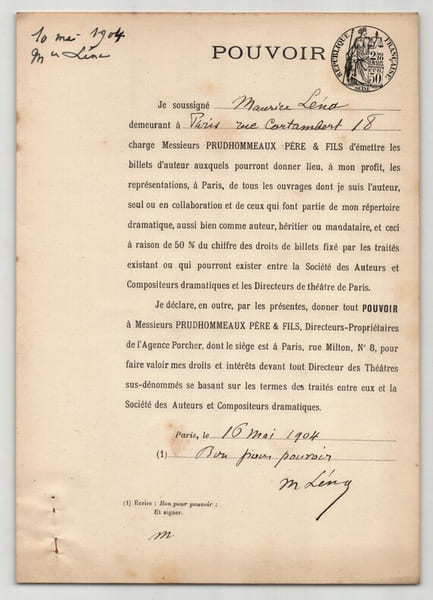 10 mai 1904
Mce Léna
POUVOIR
RÉPUBLIQUE FRANÇAISE
2/10 EN SUS
50
SEINE
Je soussigné Maurice Léna
demeurant à Paris rue Cortambert 18
charge Messieurs PRUDHOMMEAUX PÈRE & FILS d'émettre les
billets d'auteur auxquels pourront donner lieu, à mon profit, les
représentations, à Paris, de tous les ouvrages dont je suis l'auteur,
seul ou en collaboration et de ceux qui font partie de mon répertoire
dramatique, aussi bien comme auteur, héritier ou mandataire, et ceci
à raison de 50 % du chiffre des droits de billets fixé par les traités
existant ou qui pourront exister entre la Société des Auteurs et
Compositeurs dramatiques et les Directeurs de théâtre de Paris.
Je déclare, en outre, par les présentes, donner tout POUVOIR
à Messieurs PRUDHOMMEAUX PÈRE & FILS, Directeurs-Propriétaires
de l'Agence Porcher, dont le siège est à Paris, rue Milton, N° 8, pour
faire valoir mes droits et intérêts devant tout Directeur des Théâtres
sus-dénommés se basant sur les termes des traités entre eux et la
Société des Auteurs et Compositeurs dramatiques.
Paris, le 16 Mai 1904
(1) Bon pour pouvoir
M Léna
(1) Écrire : Bon pour pouvoir :
Et signer.
M